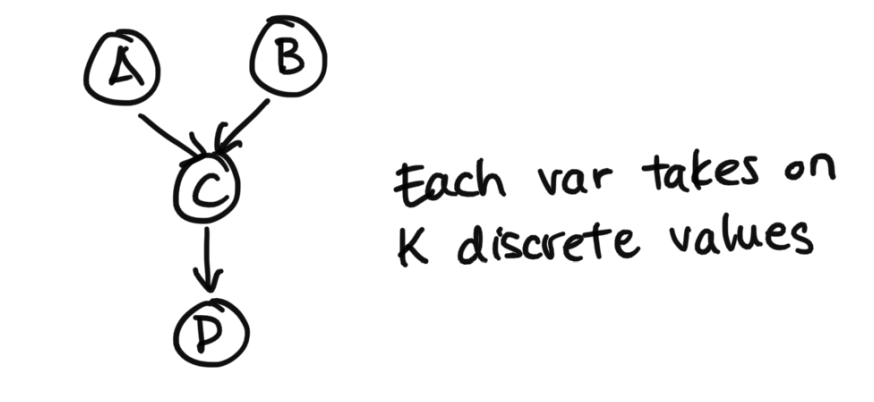 A
B
C
D
Each var takes on
K discrete values